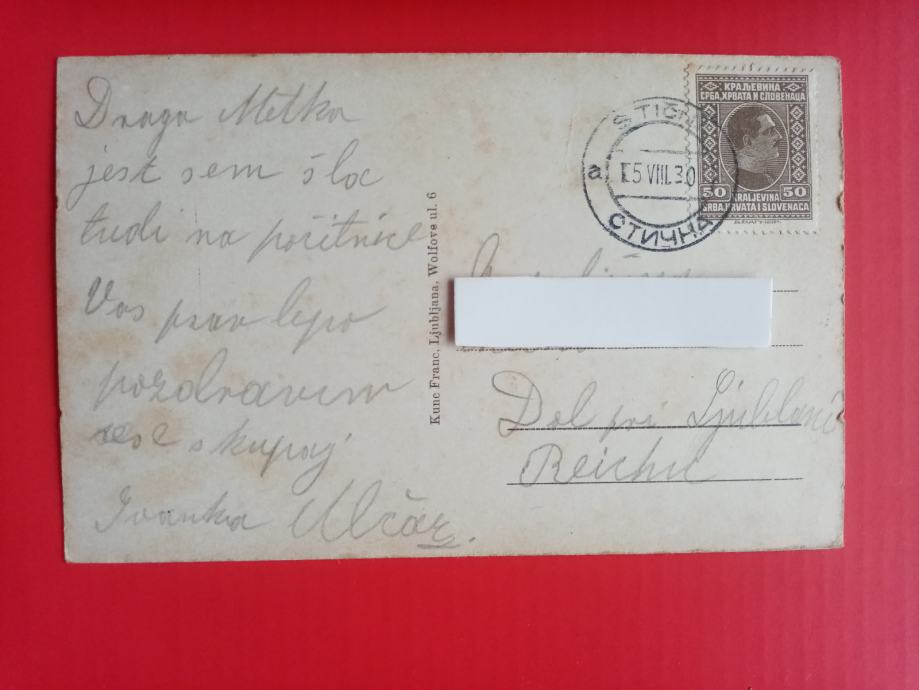 Draga Metka
jest sem šla
tudi na počitnice
Vas prav lepo
pozdravim
vse skupaj
Ivanka Ulčar.
Kunc Franc, Ljubljana, Wolfova ul. 6
STIČNA
a
15 VIII. 30
СТИЧНА
КРАЉЕВИНА
СРБА, ХРВАТА И СЛОВЕНАЦА
50 KRALJEVINA 50
SRBA, HRVATA I SLOVENACA
Dol pri Ljubljani